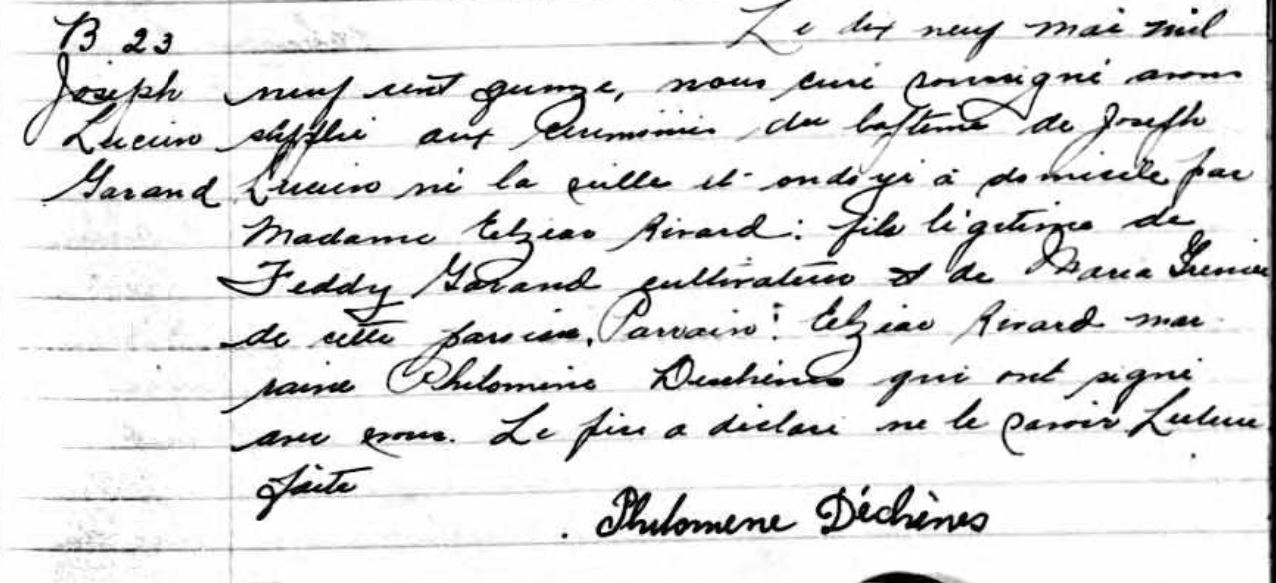 B 23
Joseph
Lucien
Garand
Le dix neuf mai mil
neuf cent quinze, nous curé soussigné avons
suppléé aux cérémonies du baptème de Joseph
Lucien né la veille et ondoyé à domicile par
Madame Elzéar Rivard: fils légitime de
Feddy Garand cultivateur et de Maria Grenier
de cette paroisse. Parrain: Elzéar Rivard mar-
raine Philomène Deschènes qui ont signé
avec nous. Le père a déclaré ne le savoir Lecture
faite
Philomene Déchènes